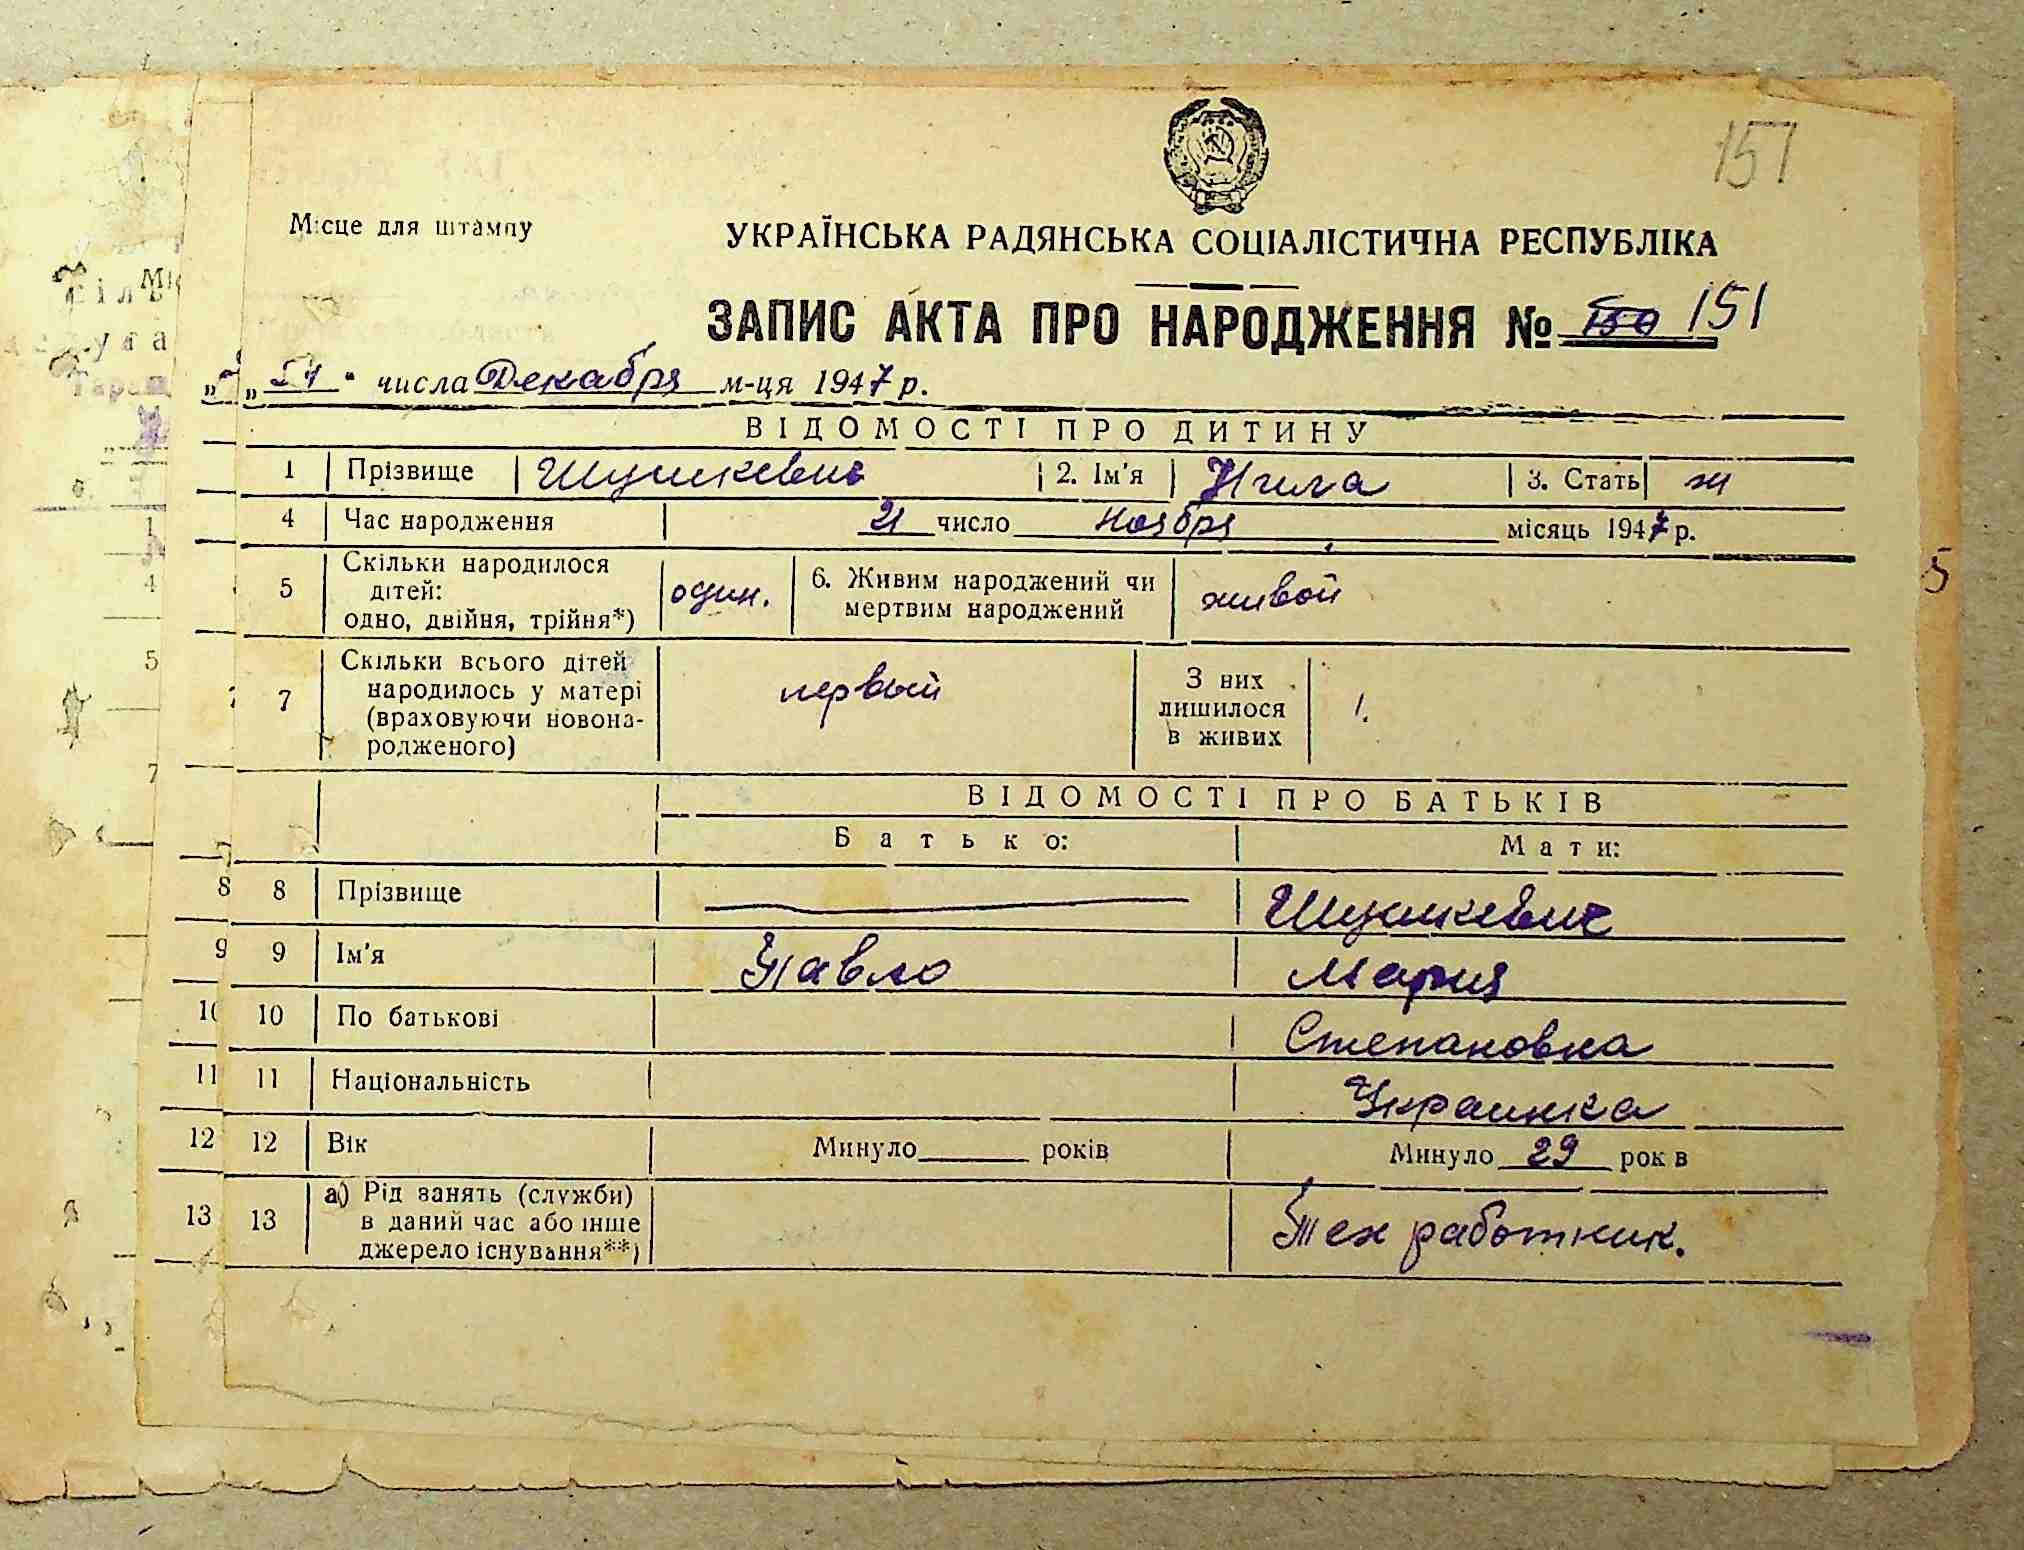 151
Місце для штампу
УКРАЇНСЬКА РАДЯНСЬКА СОЦІАЛІСТИЧНА РЕСПУБЛІКА
ЗАПИС АКТА ПРО НАРОДЖЕННЯ № 150 151
" " числа Декабря м-ця 1947 р.
ВІДОМОСТІ ПРО ДИТИНУ
1 Прізвище Шушкевич 2. Ім'я Нила 3. Стать ж
4 Час народження 21 число Ноября місяць 1947 р.
5 Скільки народилося дітей: одно, двійня, трійня*) один. 6. Живим народжений чи мертвим народжений живой
7 Скільки всього дітей народилось у матері (враховуючи новонародженого) первый З них лишилося в живих 1.
ВІДОМОСТІ ПРО БАТЬКІВ
Батько: Мати:
8 8 Прізвище Шушкевич
9 9 Ім'я Павло Мария
10 10 По батькові Степановна
11 11 Національність Украинка
12 12 Вік Минуло років Минуло 29 рок в
13 13 а) Рід занять (служби) в даний час або інше джерело існування**) Тех работник.